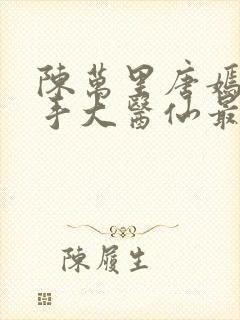 陳萬里唐嫣
手大醫仙最
陳履生